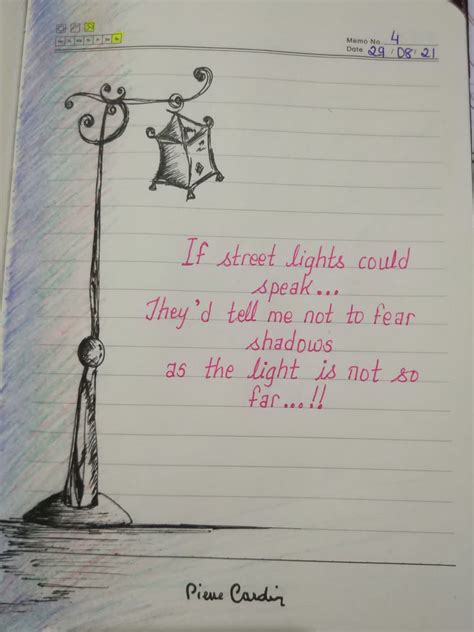 Memo No. 4
Date 29/08/21
If street lights could
speak...
They'd tell me not to fear
shadows
as the light is not so
far...!!
Pierre Cardin